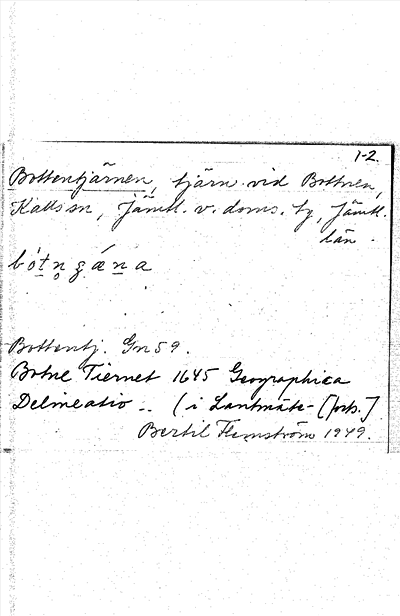 1-2.
Bottentjärnen, tjärn vid Bottnen,
Kalls sn, Jämtl. v. doms. tg, Jämtl.
län.
Bottentj. Gn 59.
Botne Tiernet 1645 Geographica
Delineatio .. (i Lantmäte- [forts.]
Bertil Flemström 1949.